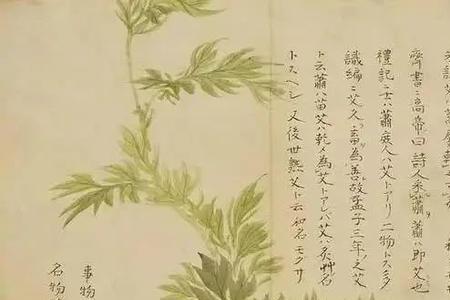 齊書ニ高帝曰詩人采蕭蕭ハ即艾也
禮記ニ士ハ蕭庶人ハ艾トアリ二物トス多
識編ニ艾久ク畜為善故孟子三年ノ之艾
ト云蕭ハ苗艾ハ乾〆為艾トアレバ艾ハ灸艸名
トスヘシ 又後世熟艾ト云和名モグサ
事物
名物